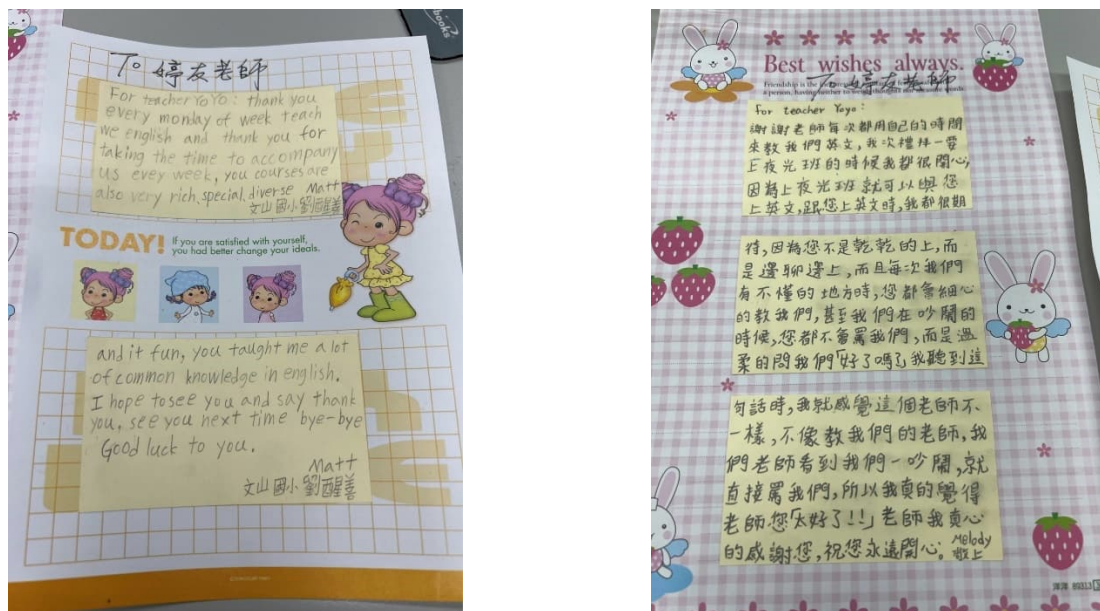 books
To 婷友老師
For teacher YoYo: thank you
every monday of week teach
we english and thank you for
taking the time to accompany
us evey week, you courses are
also very rich, special, diverse Matt
文山國小劉醒善
TODAY!
If you are satisfied with yourself,
you had better change your ideals.
and it fun, you taught me a lot
of common knowledge in english.
I hope to see you and say thank
you, see you next time bye-bye
Good luck to you.
Matt
文山國小劉醒善
Best wishes always.
Friendship is the
To 婷友老師
a person, having neither to
For teacher Yoyo:
謝謝老師每次都用自己的時間
來教我們英文,我次禮拜一要
上夜光班的時候我都很開心,
因為上夜光班就可以與您
上英文,跟您上英文時,我都很期
待,因為您不是乾乾的上,而
是邊聊邊上,而且每次我們
有不懂的地方時,您都會細心
的教我們,甚至我們在吵鬧的
時候,您都不會罵我們,而是溫
柔的問我們「好了嗎」我聽到這
句話時,我就感覺這個老師不
一樣,不像教我們的老師,我
們老師看到我們一吵鬧,就
直接罵我們,所以我真的覺得
老師您「太好了!!」老師我真心
的感謝您,祝您永遠開心。Melody
敬上
洋洋 89313